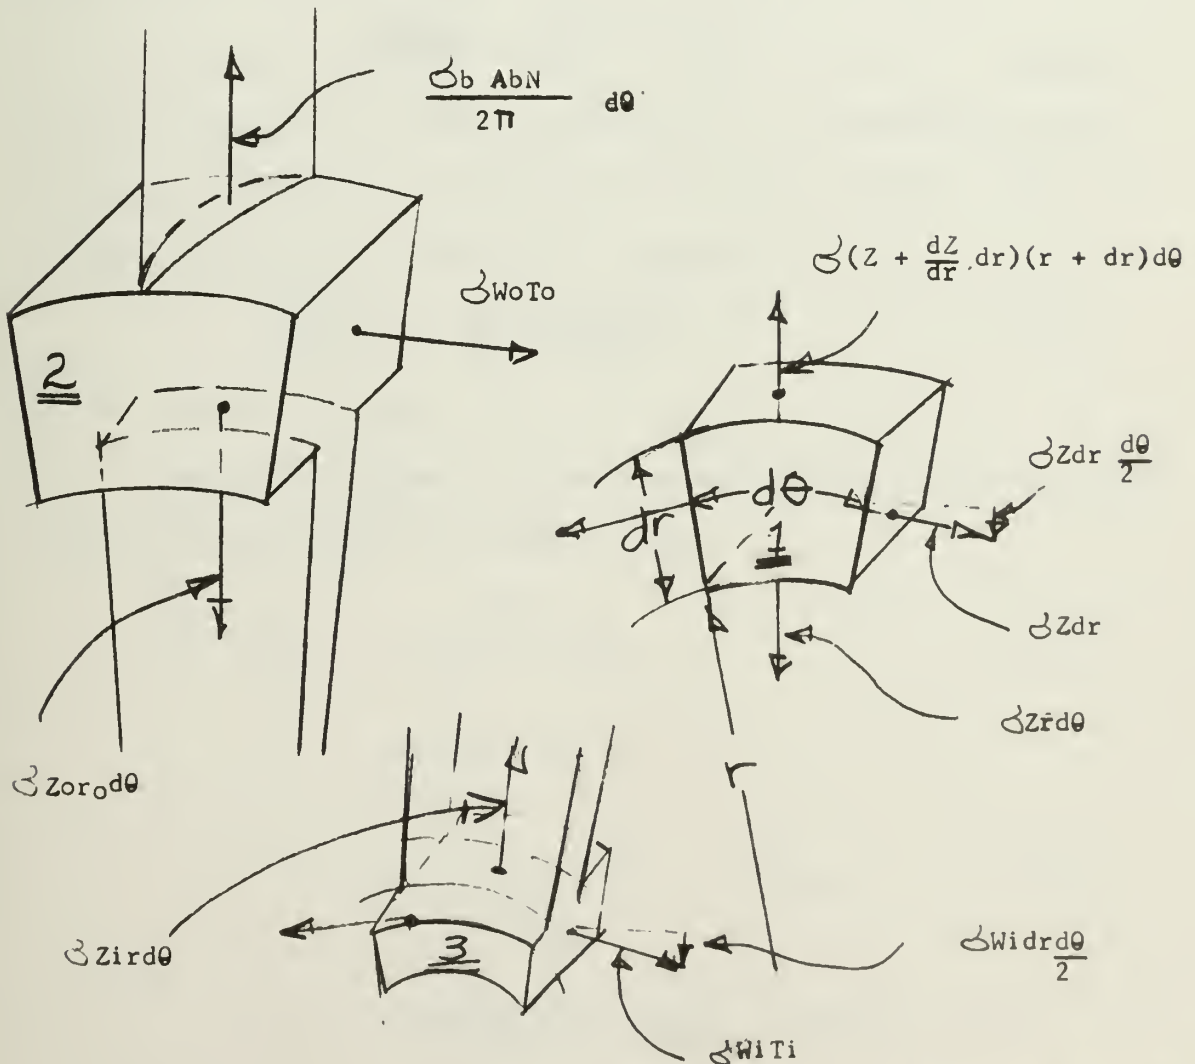 σb AbN
2π dθ
σWoTo
σ(Z + dZ/dr dr)(r + dr)dθ
2
σZdr dθ/2
dθ
dr
1
σZdr
σZrdθ
r
σZorodθ
σZirdθ
3
σWidrdθ/2
σWiTi